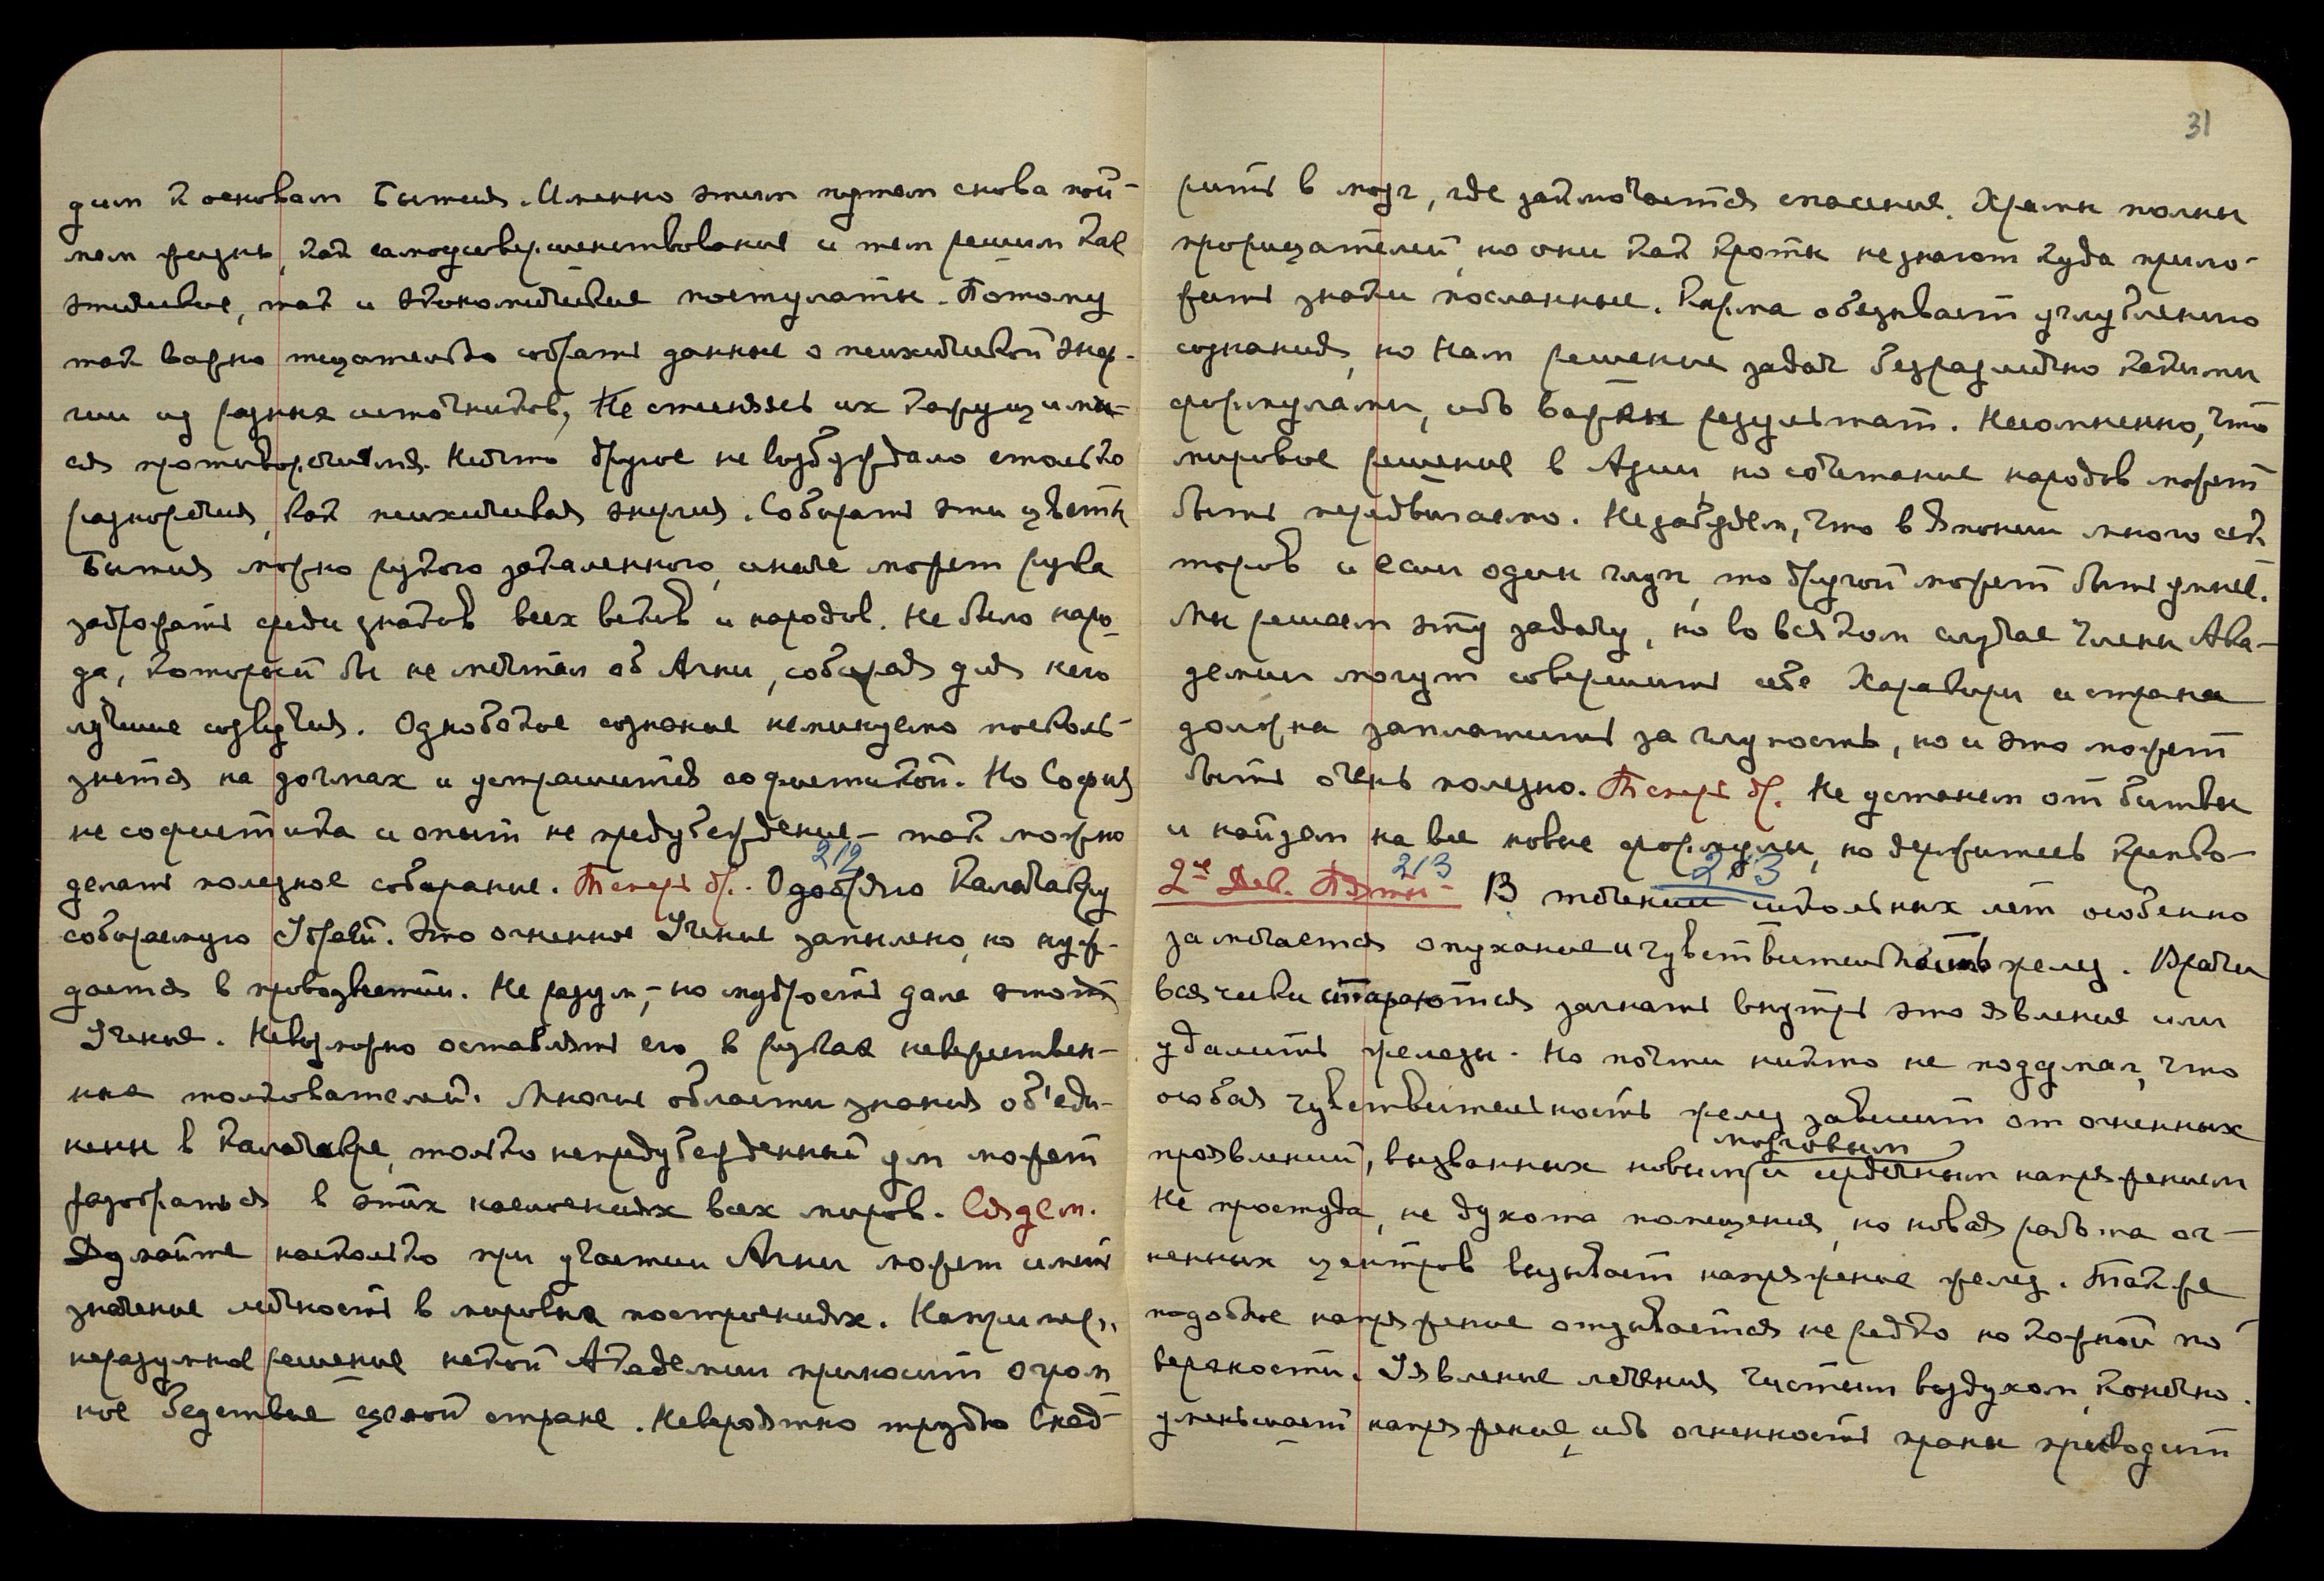 дим к основам Бытия. Именно этим путем снова пой-
мем жизнь, как самоусовершенствование и тем решим как
этические, так и экономические постулаты. Потому
так важно тщательно собрать данные о психической энер-
гии из разных источников, Не стесняясь их кажущими-
ся противоречиями. Ничто другое не возбуждало столько
разноречия, как психическая энергия. Собирать эти цветы
Бытия можно рукою закаленного, иначе может рука
задрожать среди знаков всех веков и народов. Не было наро-
да, который бы не мечтал об Агни, собирая для него
лучшие созвучия. Однобокое сознание неминуемо посколь-
знется на догмах и устрашится софистикой. Но София
не софистика и опыт не предубеждение – так можно
делать полезное собирание. Теперь др. 212 Одобряю Калачакру
собираемую Удраей. Это огненное Учение запылено, но нуж-
дается в провозвестии. Не разум, – но мудрость дала это
Учение. Невозможно оставлять его в руках невежествен-
ных толкователей. Многие области знания об'еди-
нены в Калачакре, только непредубежденный ум может
разобраться в этих наслоениях всех миров. Сядем.
Думайте насколько при участии Агни может иметь
значение личность в мировых построениях. Например,
неразумное решение некой Академии приносит огром
ное бедствие целой стране. Невероятно трудно внед-
31
рить в мозг, где заключается спасение. Храмы полны
прорицателей, но они как кроты не знают куда прило-
жить знаки посланные. Карма обязывает углублению
сознания, но Нам решение задач безразлично какими
формулами, ибо важен результат. Несомненно, что
мировое решение в Азии но сочетание народов может
быть передвигаемо. Не забудем, что в Японии много сек
торов и если один глух, то другой может быть умнее.
Мы решаем эту задачу, но во всяком случае члены Ака-
демии могут совершить себе Харакири и страна
должна заплатить за глупость, но и это может
быть очень полезно. Теперь др. Не устанем от битвы
и найдем на все новые формулы, но держитесь крепко –
2ое Дек. Пятн – 213 213 В течении школьных лет особенно
замечается опухание и чувствительность желез. Врачи
всячески стараются загнать внутрь это явление или
удалить железы. Но почти никто не подумал, что
особая чувствительность желез зависит от огненных
мозговым
проявлений, вызванных новым и сердечным напряжением
Не простуда, не духота помещения, но новая работа ог-
ненных центров вызывает напряжение желез. Также
подобное напряжение отзывается не редко на кожной по
верхности. Явление лечения чистым воздухом, конечно.
уменьшает напряжение, ибо огненность праны приводит